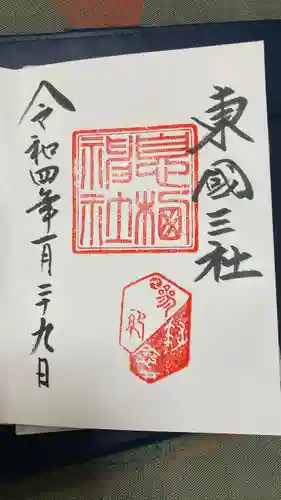 東國三社
息栖神社
令和四年一月二十九日